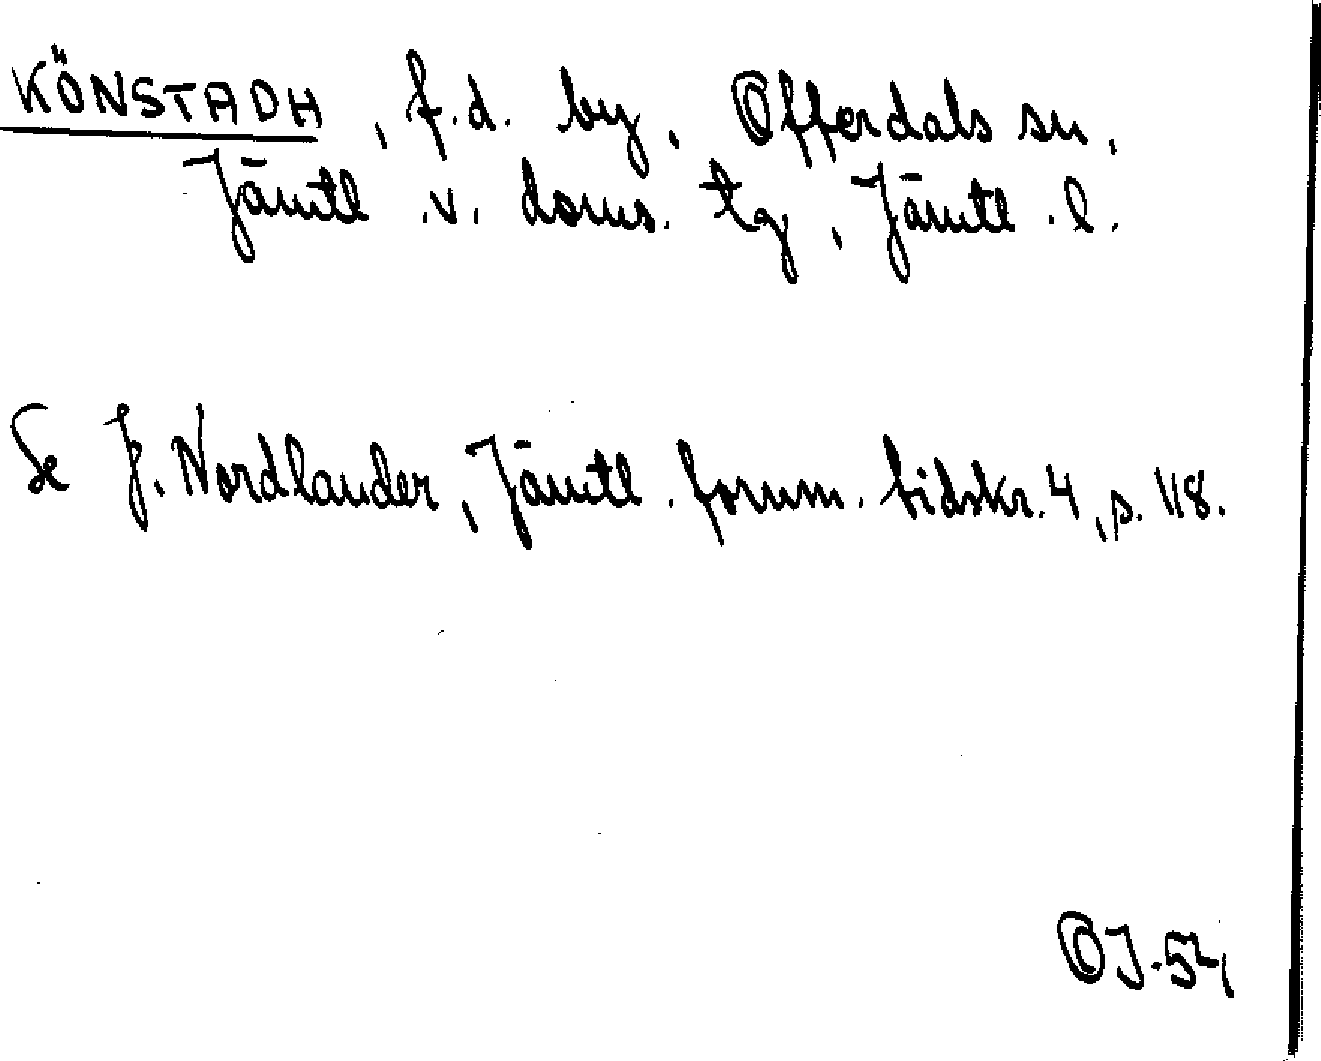 KÖNSTADH, f.d. by, Offerdals sn,
Jämtl. v. doms. tg, Jämtl. l.
Se J. Nordlander, Jämtl. fornm. tidskr. 4, s. 118.
OJ-54